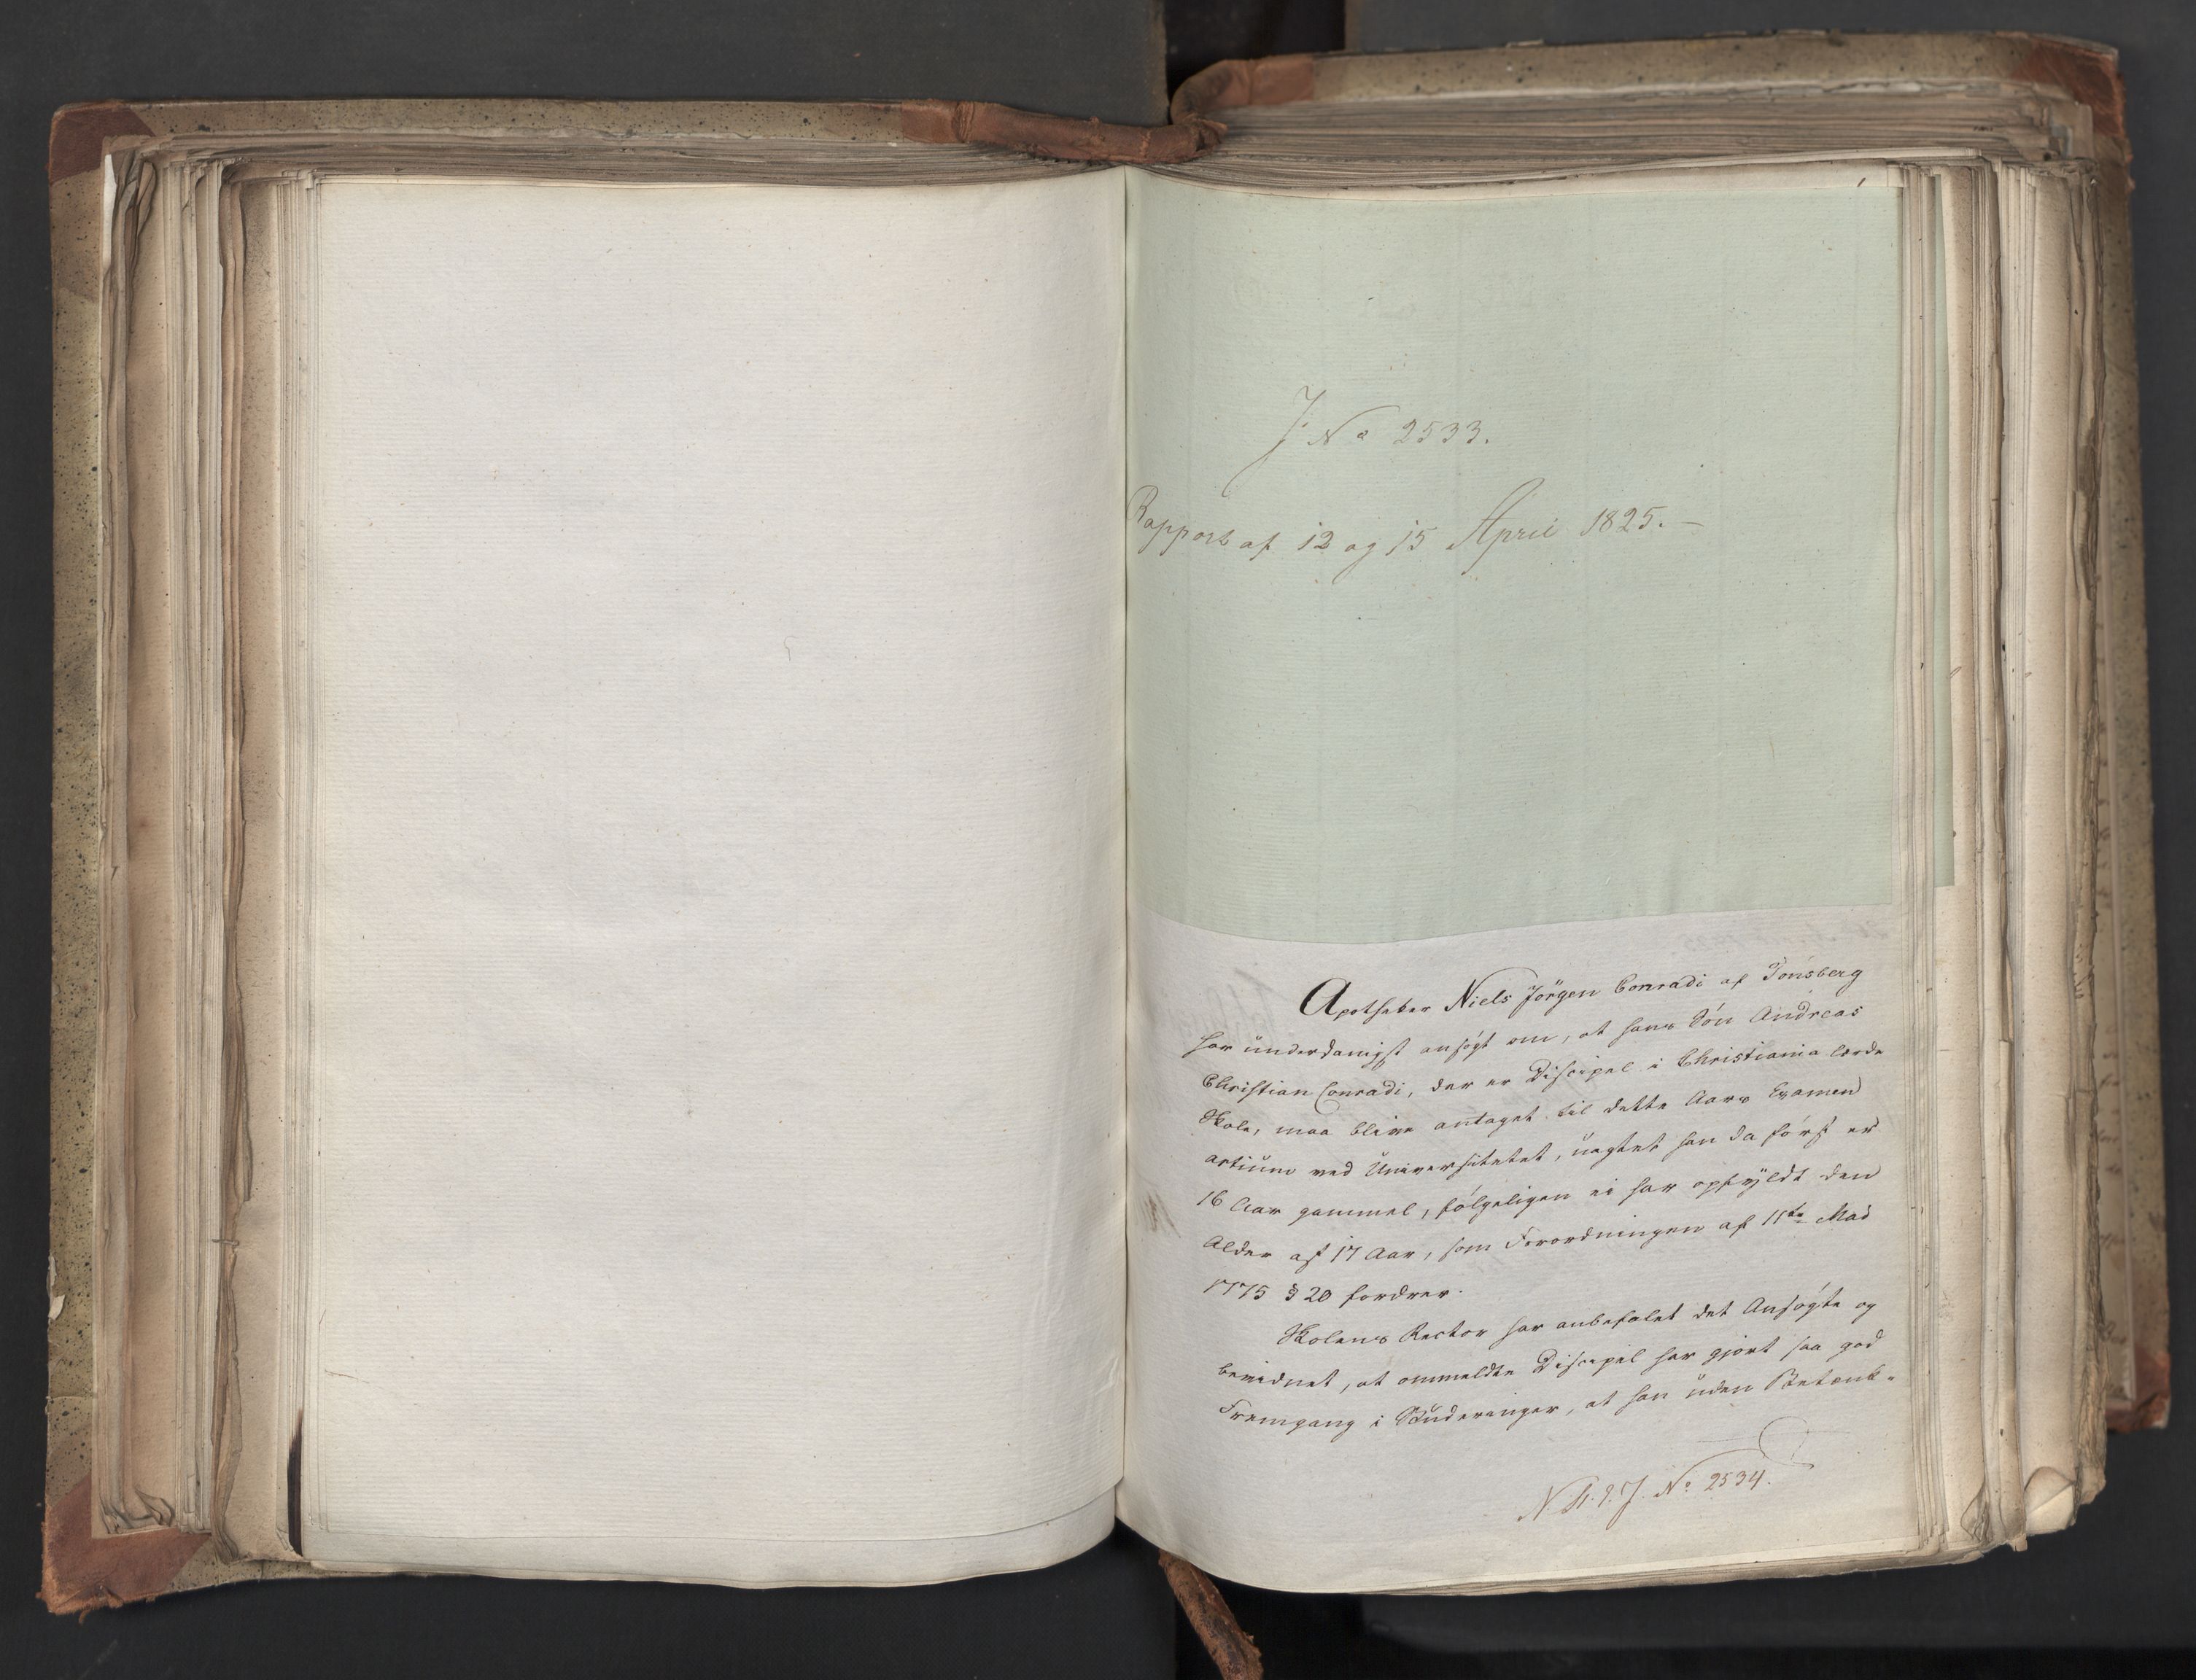 J. No 2533.
Rapport af 12 og 15 April 1825. –
Apotheker Niels Jörgen Conradi af Tönsberg
har underdanigst ansøgt om, at hans Søn Andreas
Christian Conradi, der er Discipel i Christiania lærde
Skole, maa blive antaget til dette Aars Examen
artium ved Universitetet, uagtet han da først er
16 Aar gammel, følgeligen ei har opfyldt den
Alder af 17 Aar, som Forordningen af 11te Mai
1775 § 20 fordrer.
Skolens Rector har anbefalet det Ansøgte og
bevidnet, at ommeldte Discipel har gjort saa god
Fremgang i Studeringer, at han uden Betænk-
J. No 2534.